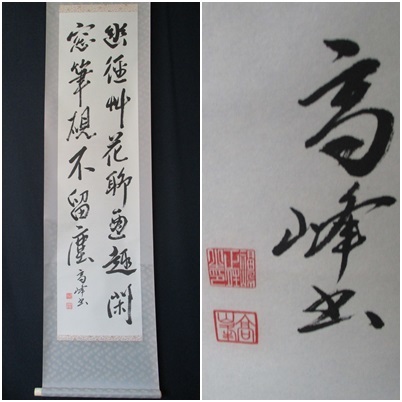 幽徑艸花聊寓趣閑
窓筆硯不留塵
高峰書
高峰書